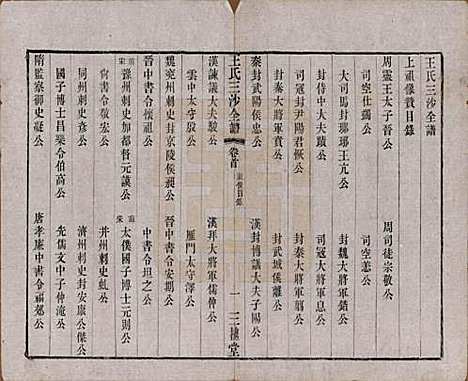 王氏三沙全譜
上祖像贊目錄
周靈王太子晉公
周司徒宗敬公
司空仕鴻公
司空恙公
大司馬封瑯琊王亢公
封魏大將軍錯公
封侍中大夫蹟公
司寇大將軍息公
司寇封尹陽君恢公
封秦大將軍翦公
封秦大將軍賁公
封武城侯離公
秦封武陽侯忠公
漢封博議大夫子陽公
王氏三沙全譜
卷首
像贊目錄
一
三槐堂
漢諫議大夫駿公
漢拜大將軍儒仲公
魏兗州刺史封京陵侯昶公
雁門太守澤公
晉中書令懷祖公
晉中書令安期公
中書令坦之公
前宋豫州刺史加都督元謨公
前宋太僕國子博士元則公
尚書令敬宏公
井州刺史虬公
同州刺史彥公
濟州刺史封安康公傑公
國子博士昌樂令伯高公
先儒文中子仲淹公
隋監察御史凝公
唐孝廉中書令福郊公